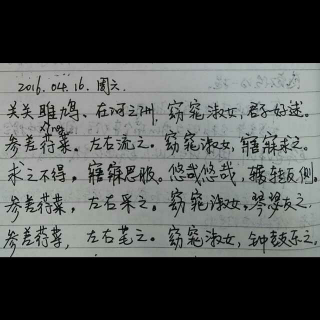 2016.04.16.周六.
关关雎鸠,在河之洲,窈窕淑女,君子好逑。
参差荇菜,左右流之。窈窕淑女,寤寐求之。
求之不得,寤寐思服。悠哉悠哉,辗转反侧。
参差荇菜,左右采之。窈窕淑女,琴瑟友之.
参差荇菜,左右芼之。窈窕淑女,钟鼓乐之.